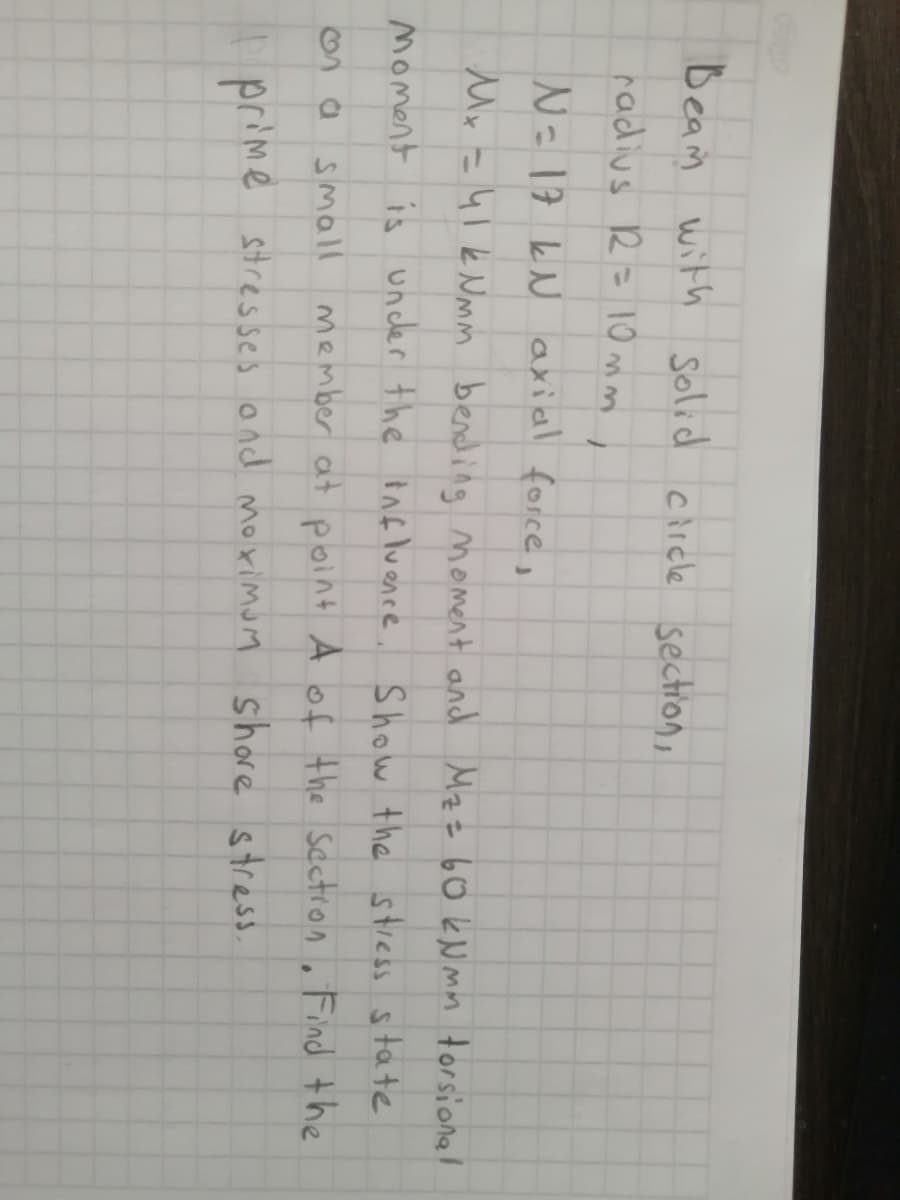 Beam with solid circle section,
radius R = 10 mm,
N = 17 kN axial force,
Mx = 41 kNmm bending moment and Mz = 60 kNmm torsional
moment is under the influence. Show the stress state
on a small member at point A of the section. Find the
prime stresses and maximum shore stress.